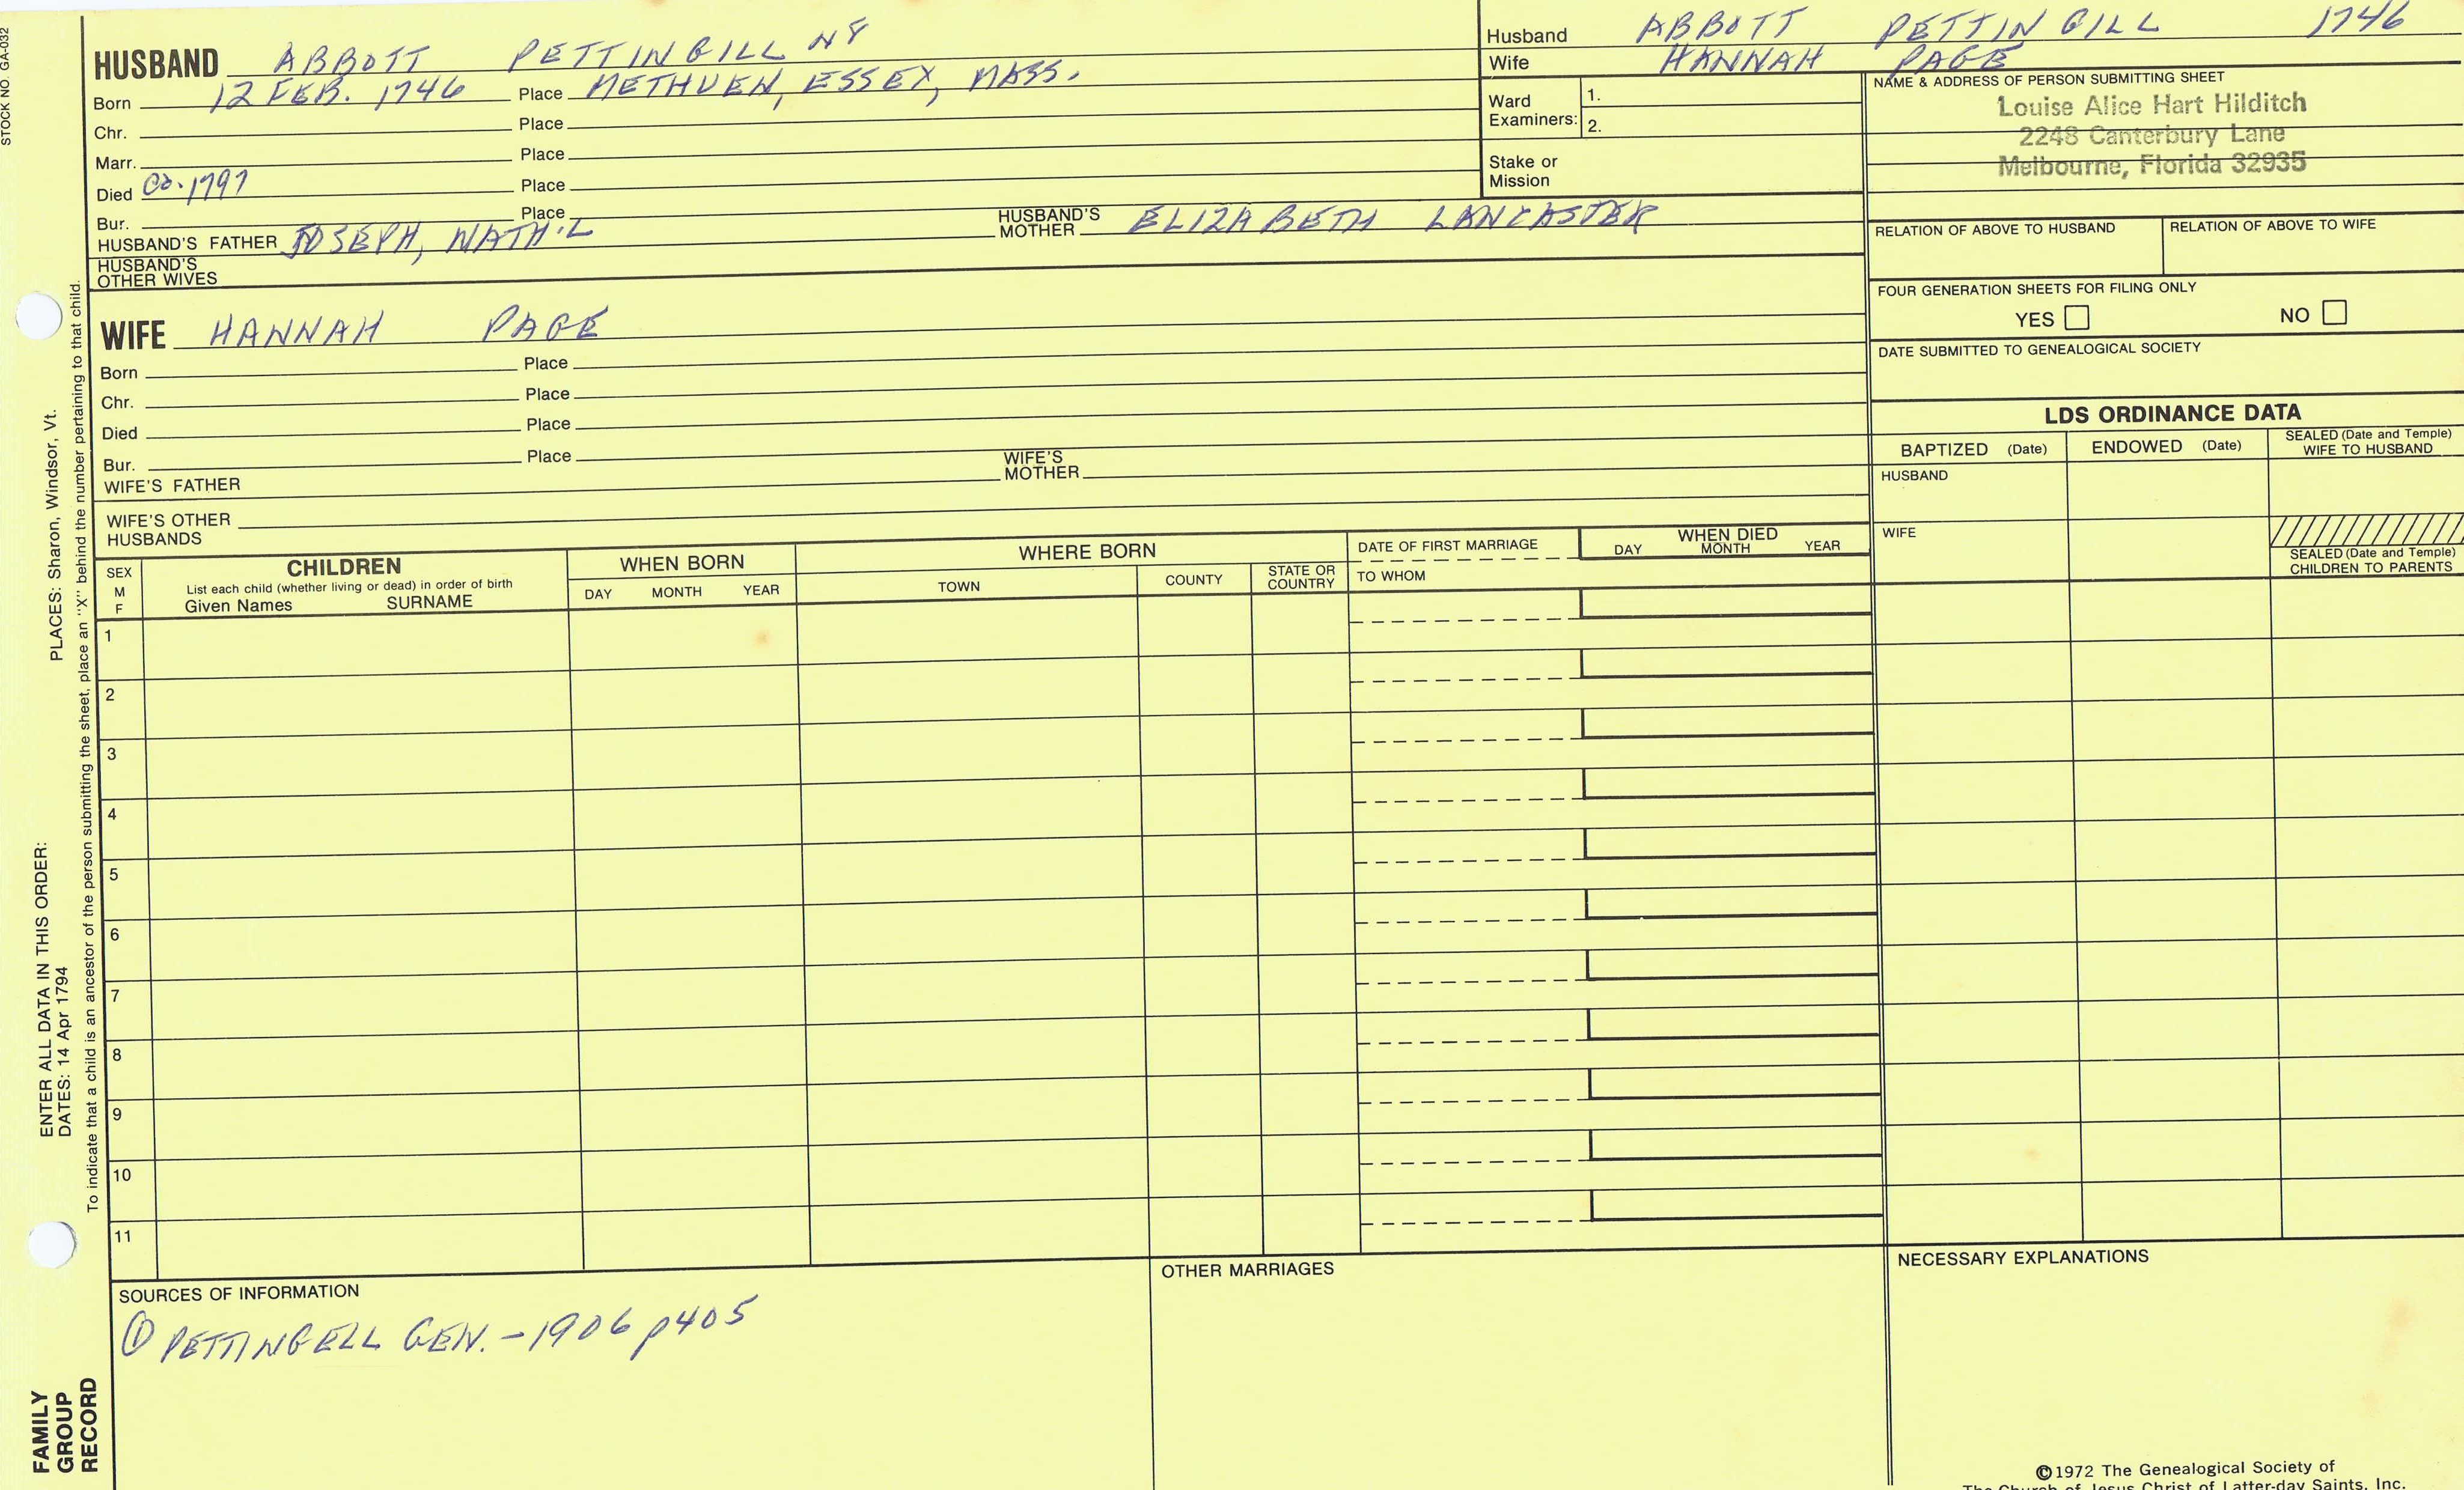 STOCK NO. GA-032
HUSBAND ABBOTT PETTINGILL
Born 12 FEB. 1746 Place METHUEN, ESSEX, MASS.
Chr. Place
Marr. Place
Died ca. 1797 Place
Bur. Place
HUSBAND'S FATHER JOSEPH, NATH'L HUSBAND'S MOTHER ELIZABETH LANCASTER
HUSBAND'S
OTHER WIVES
Husband ABBOTT PETTINGILL 1746
Wife HANNAH PAGE
Ward
Examiners:
1.
2.
Stake or
Mission
NAME & ADDRESS OF PERSON SUBMITTING SHEET
Louise Alice Hart Hilditch
2248 Canterbury Lane
Melbourne, Florida 32935
RELATION OF ABOVE TO HUSBAND RELATION OF ABOVE TO WIFE
FOUR GENERATION SHEETS FOR FILING ONLY
YES NO
DATE SUBMITTED TO GENEALOGICAL SOCIETY
WIFE HANNAH PAGE
Born Place
Chr. Place
Died Place
Bur. Place
WIFE'S FATHER WIFE'S MOTHER
WIFE'S OTHER
HUSBANDS
LDS ORDINANCE DATA
BAPTIZED (Date) ENDOWED (Date) SEALED (Date and Temple) WIFE TO HUSBAND
HUSBAND
WIFE
SEALED (Date and Temple)
CHILDREN TO PARENTS
SEX
M
F
CHILDREN
List each child (whether living or dead) in order of birth
Given Names SURNAME
WHEN BORN
DAY MONTH YEAR
WHERE BORN
TOWN COUNTY STATE OR COUNTRY
DATE OF FIRST MARRIAGE
TO WHOM
WHEN DIED
DAY MONTH YEAR
1
2
3
4
5
6
7
8
9
10
11
SOURCES OF INFORMATION
① PETTINGELL GEN. - 1906 p405
OTHER MARRIAGES
NECESSARY EXPLANATIONS
©1972 The Genealogical Society of
The Church of Jesus Christ of Latter-day Saints, Inc.
ENTER ALL DATA IN THIS ORDER:
DATES: 14 Apr 1794
PLACES: Sharon, Windsor, Vt.
To indicate that a child is an ancestor of the person submitting the sheet, place an "X" behind the number pertaining to that child.
FAMILY
GROUP
RECORD